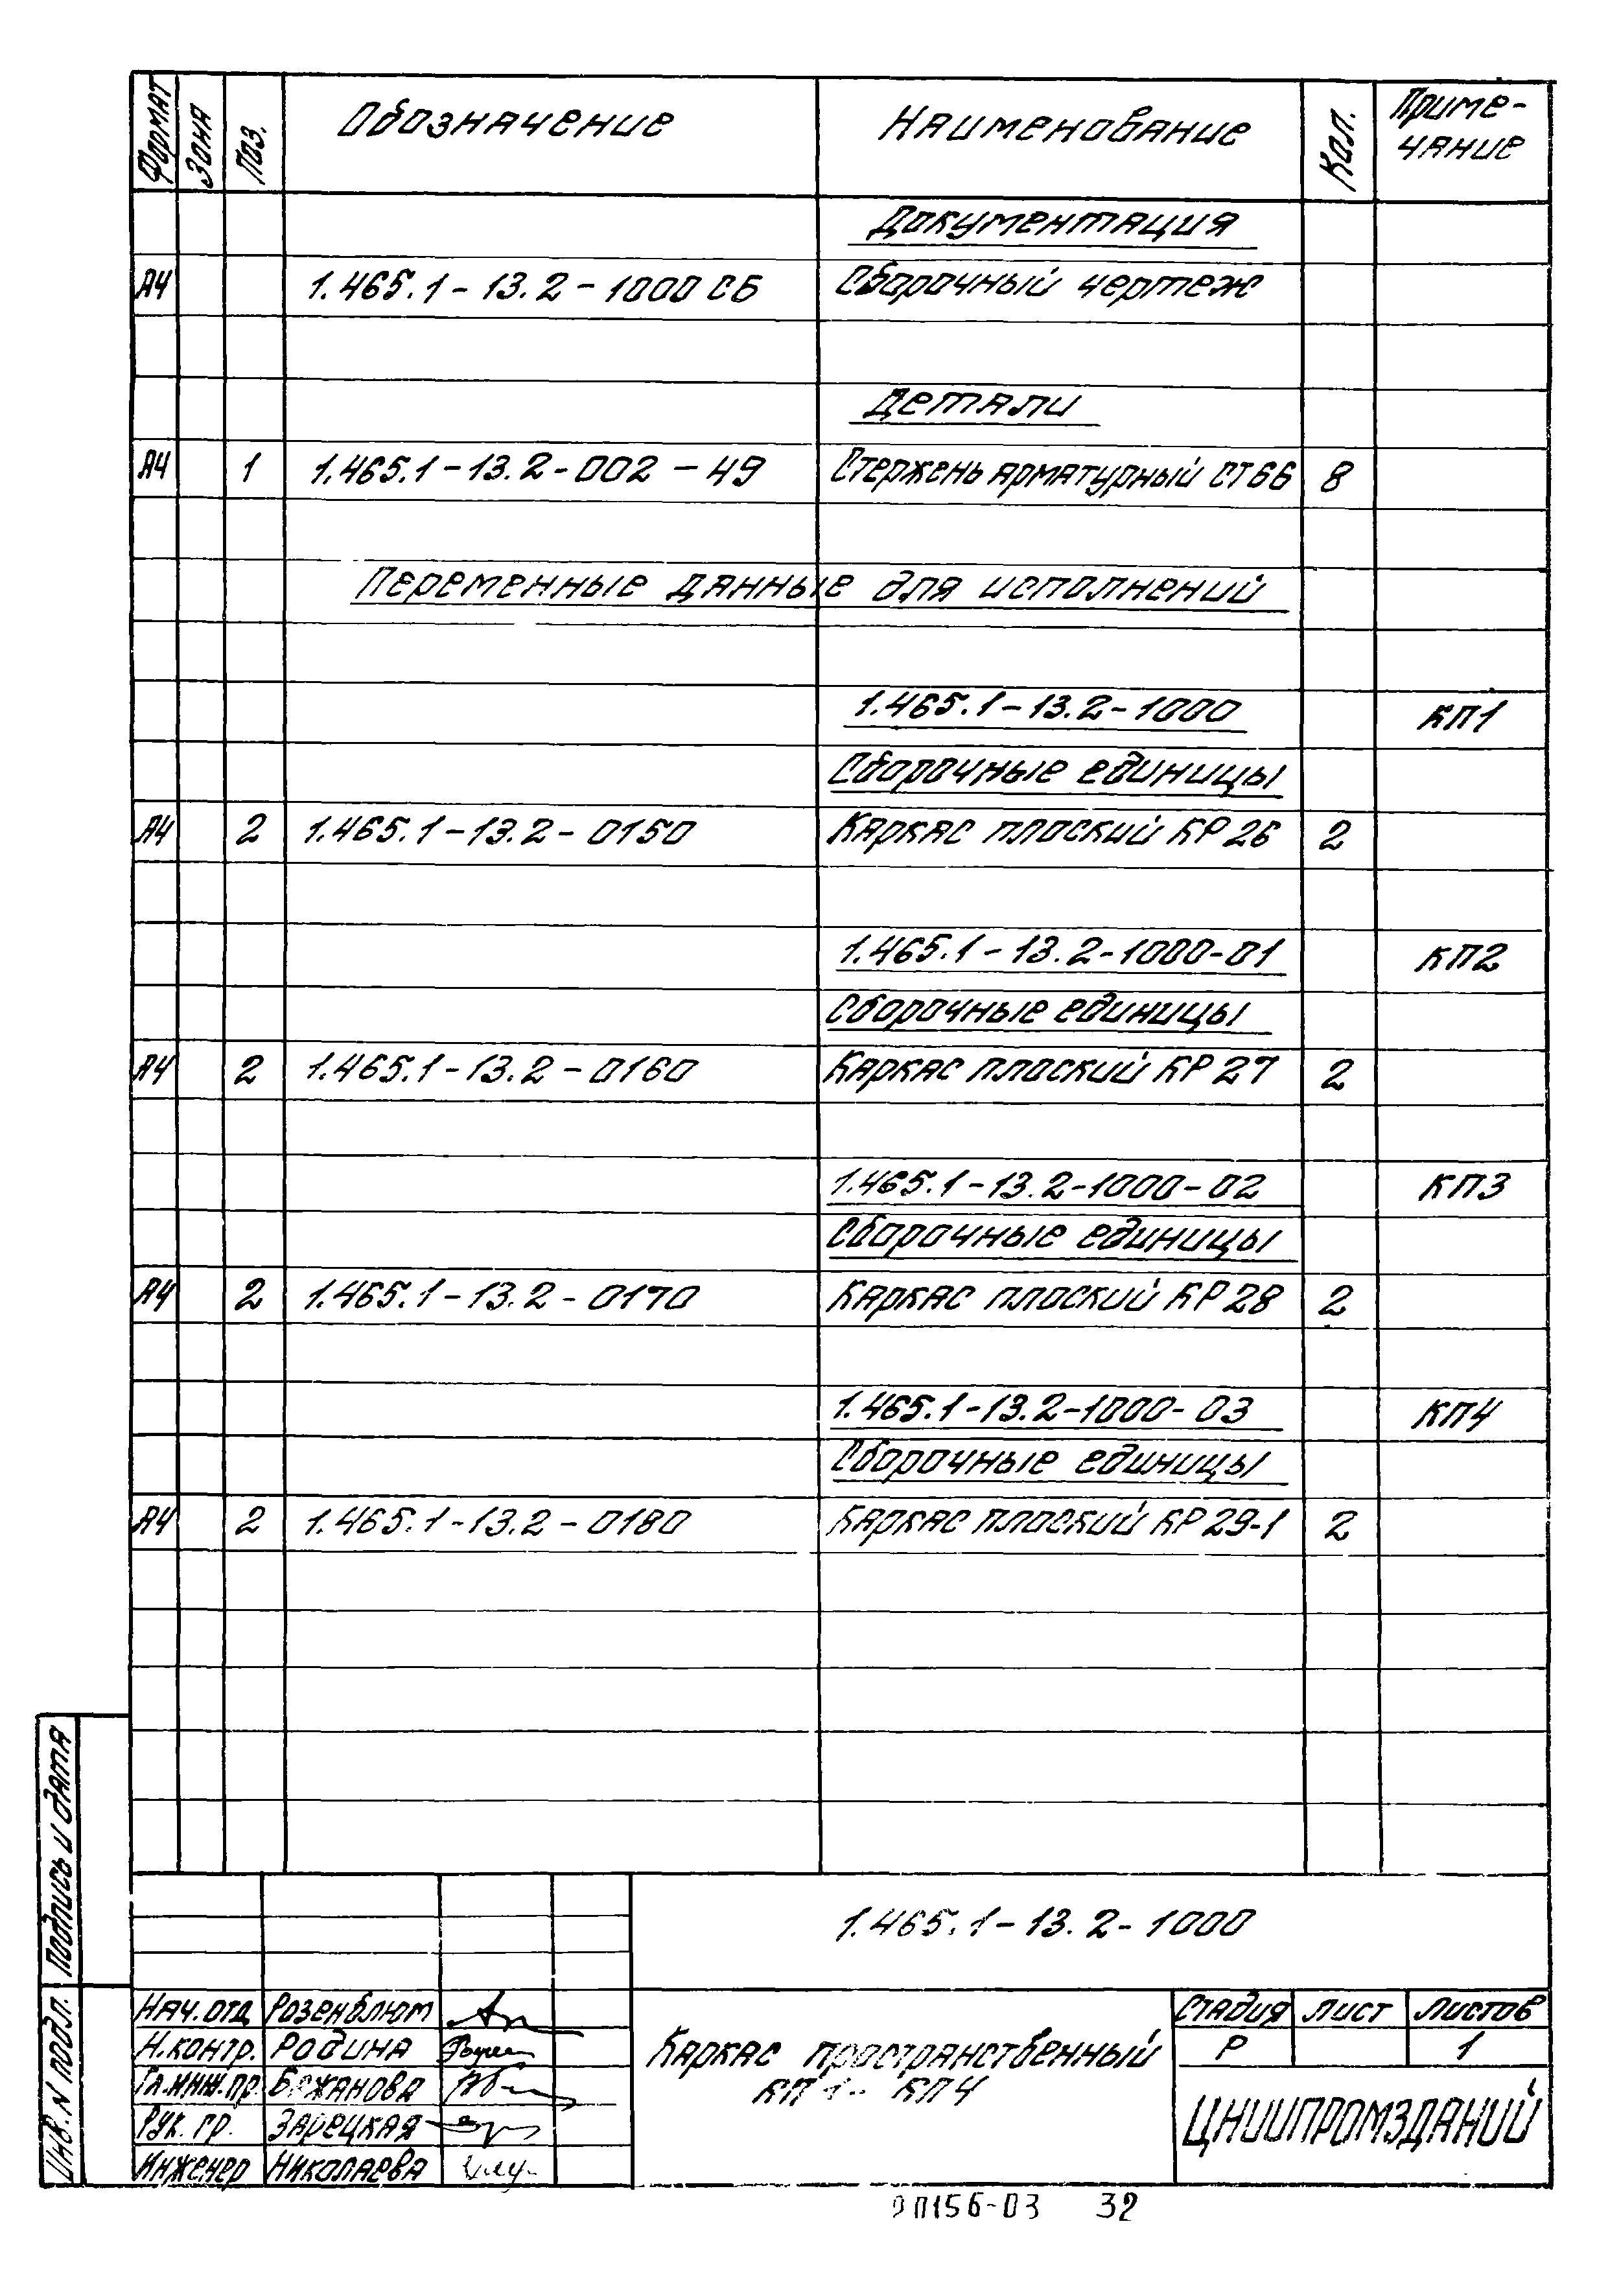 Формат Зона Поз. Обозначение Наименование Кол. Приме-
чание
Документация
А4 1.465.1-13.2-1000 СБ Сборочный чертеж
Детали
А4 1 1.465.1-13.2-002-49 Стержень арматурный СТ66 8
Переменные данные для исполнений
1.465.1-13.2-1000 КП1
Сборочные единицы
А4 2 1.465.1-13.2-0150 Каркас плоский КР26 2
1.465.1-13.2-1000-01 КП2
Сборочные единицы
А4 2 1.465.1-13.2-0160 Каркас плоский КР27 2
1.465.1-13.2-1000-02 КП3
Сборочные единицы
А4 2 1.465.1-13.2-0170 Каркас плоский КР28 2
1.465.1-13.2-1000-03 КП4
Сборочные единицы
А4 2 1.465.1-13.2-0180 Каркас плоский КР29-1 2
Подпись и дата
Инв. N подл.
1.465.1-13.2-1000
Нач.отд Розенблюм
Н.контр. Родина
Гл.инж.пр. Бажанова
Рук. гр. Зарецкая
Инженер Николаева
Каркас пространственный
КП1-КП4
Стадия Лист Листов
Р 1
ЦНИИПРОМЗДАНИЙ
32